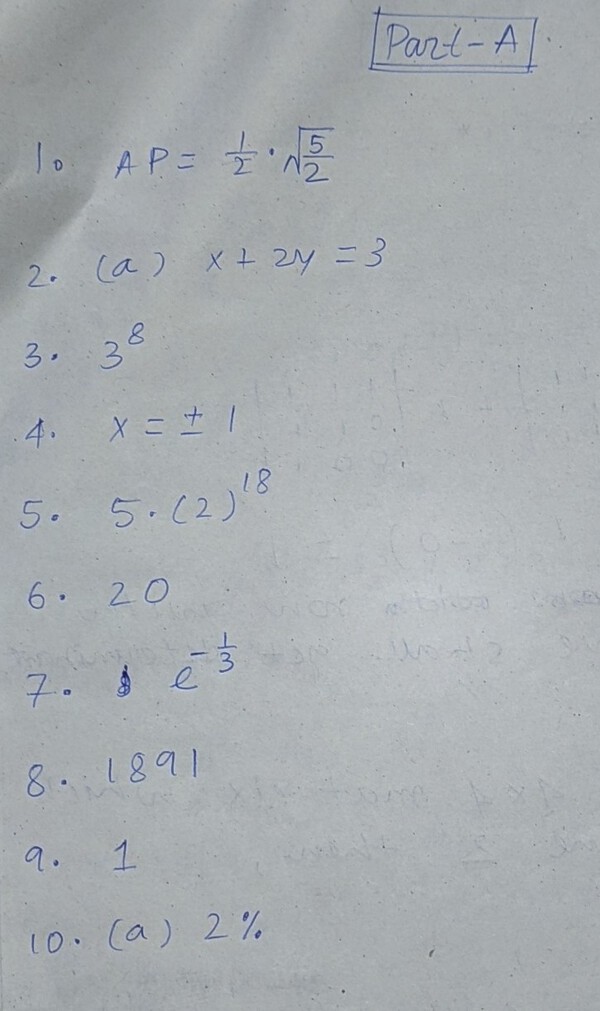 Part-A
1. AP = 1/2 · √(5/2)
2. (a) x + 2y = 3
3. 3^8
4. x = ± 1
5. 5 · (2)^18
6. 20
7. e^(-1/3)
8. 1891
9. 1
10. (a) 2%